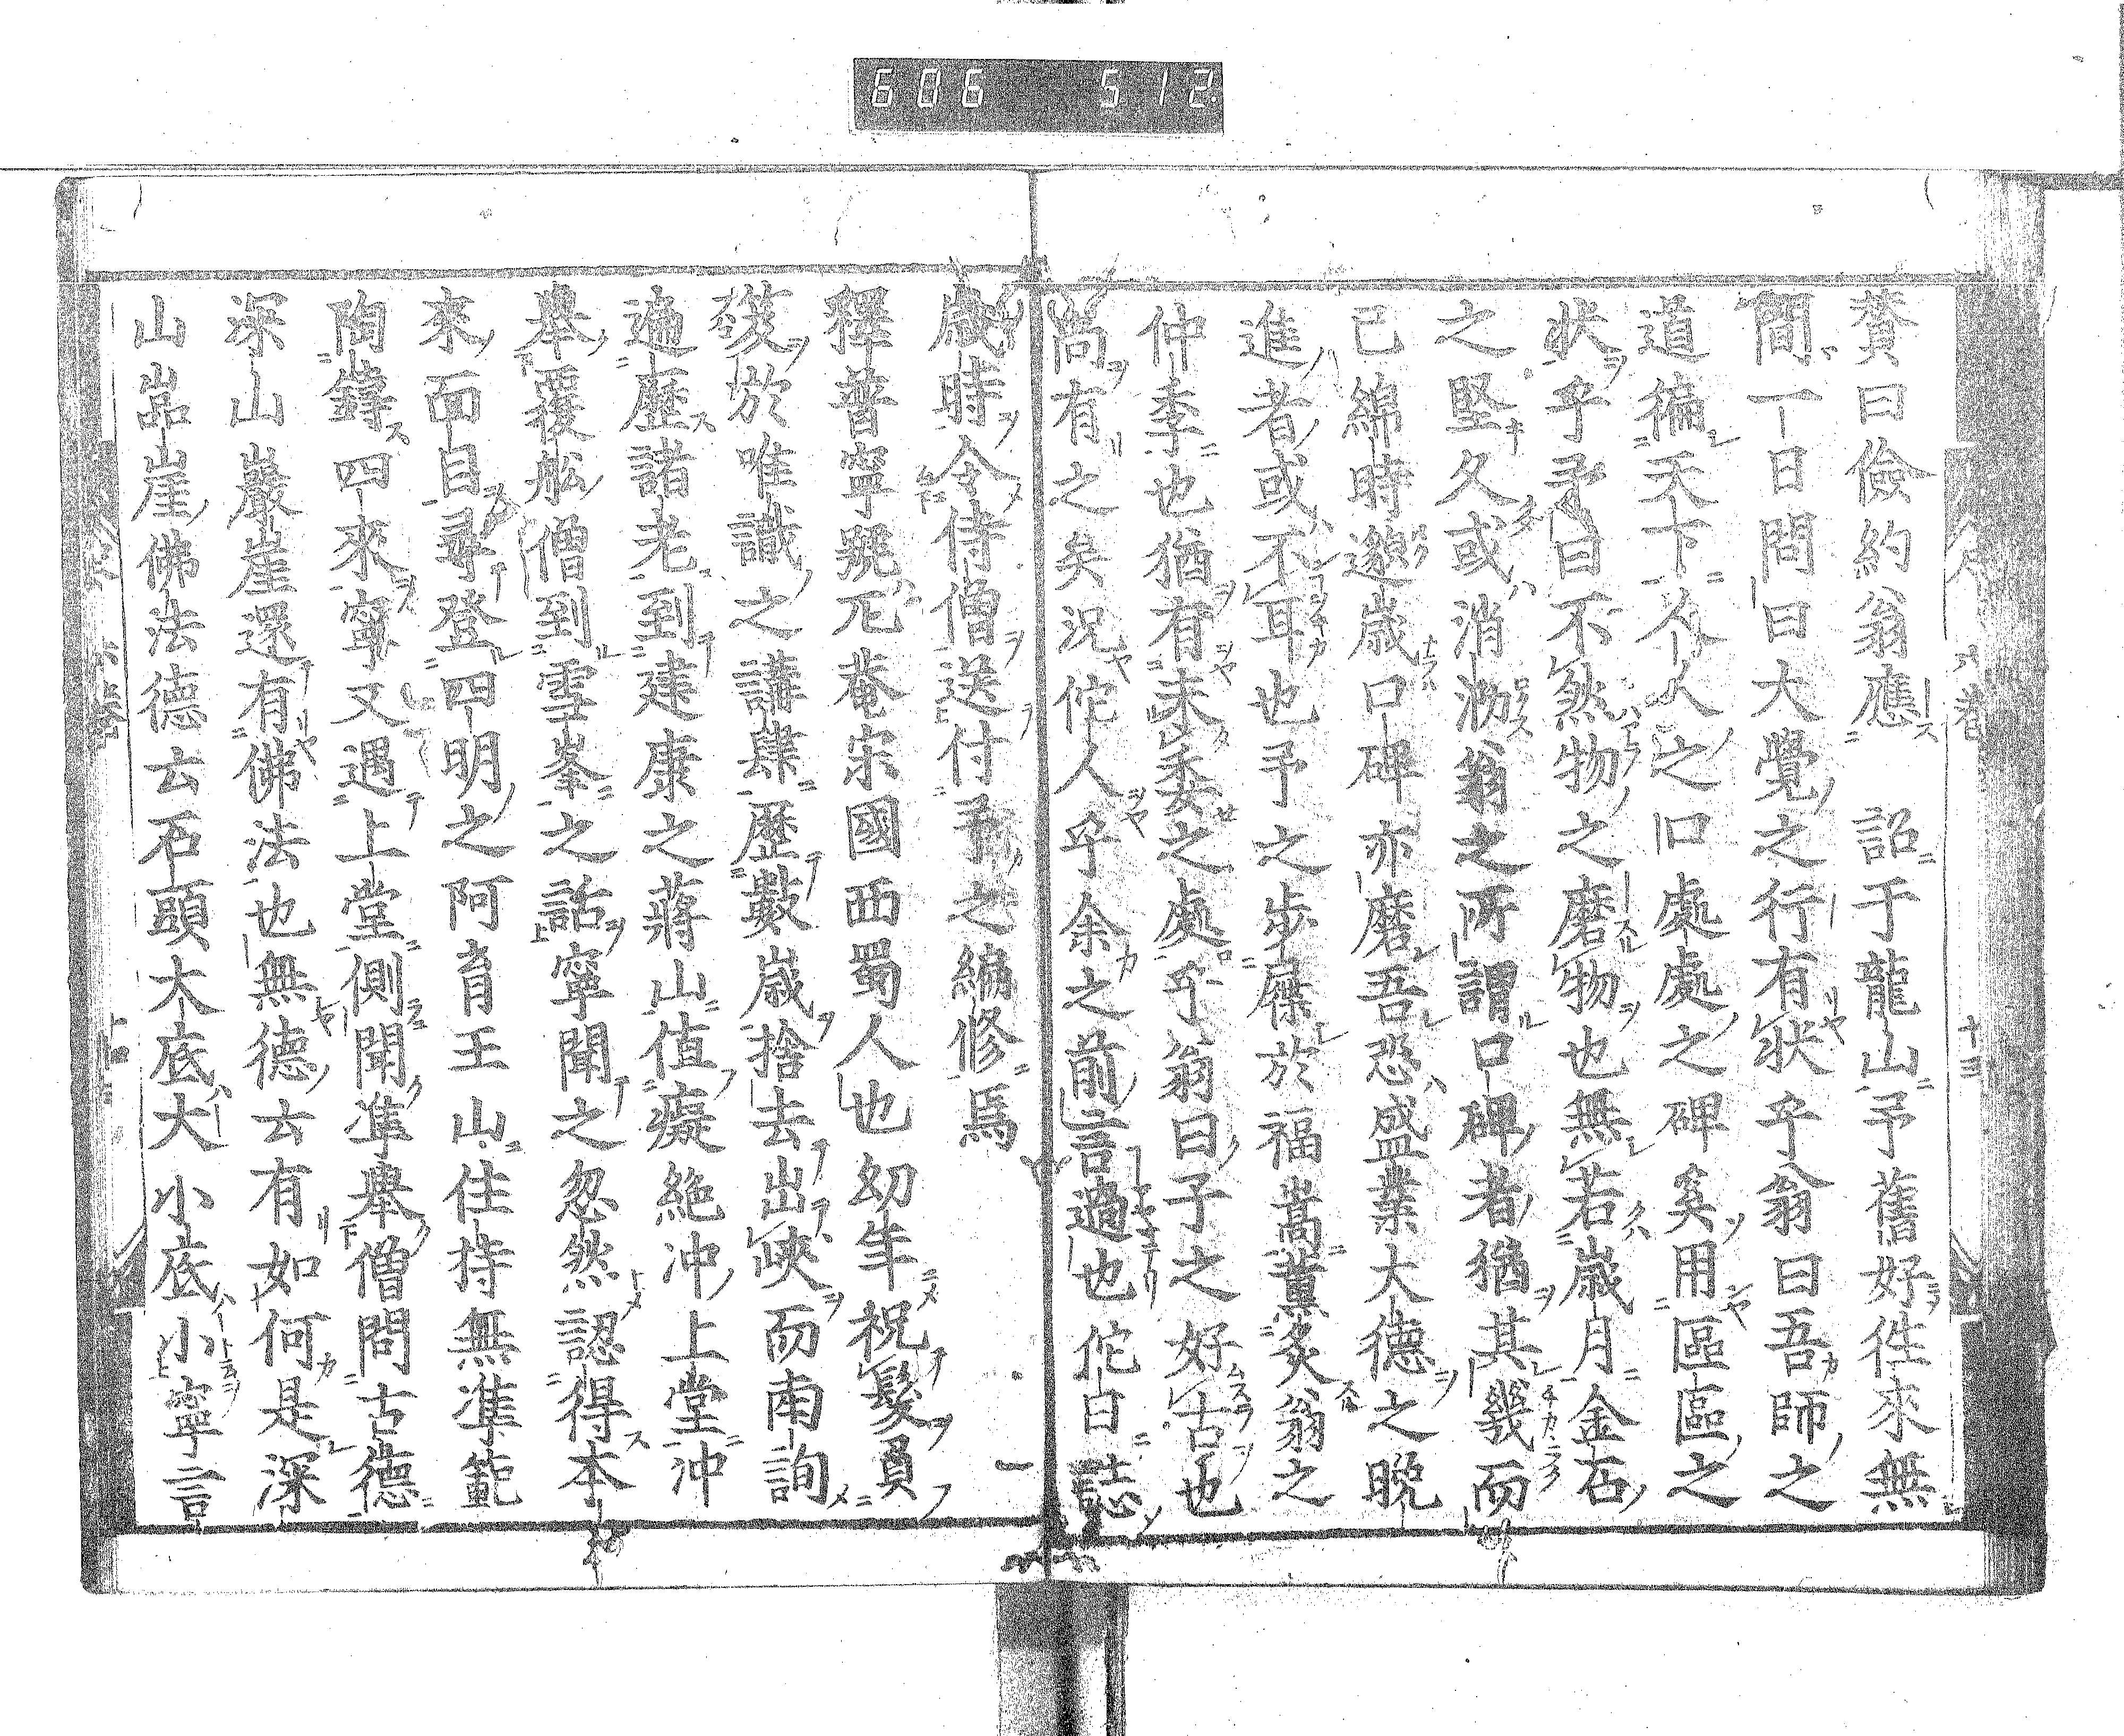 606 512
賛曰儉約翁應 詔于龍山予舊好徃來無
間一日問曰大覺之行有狀乎翁曰吾師之
道徧天下人人之口處處之碑奚用區區之
狀乎予曰不然物之磨物也無若歳月金石
之堅久或消泐翁之所謂口碑者猶其幾而
已綿時邈歳口碑亦磨吾恐盛業大德之晩
進者或不耳也予之歩屧於福嵩薫炙翁之
仲季也猶有未委之處乎翁曰子之好古也
尚有之矣況佗人乎余之前言過也佗日誌
歳時令侍僧送付予之編修焉
釋普寧號兀菴宋國西蜀人也幼年祝髮員
笈於唯識之講肆歷數歳捨去出峽而南詢
遍歷諸老到建康之蔣山値癡絶冲上堂冲
舉覆舩僧到雪峯之話寧聞之忽然認得本
來面目尋登四明之阿育王山住持無準範
陶鑄四來寧又遇上堂側聞準舉僧問古德
深山巖崖還有佛法也無德云有如何是深
山嵓崖佛法德云石頭大底大小底小寧言